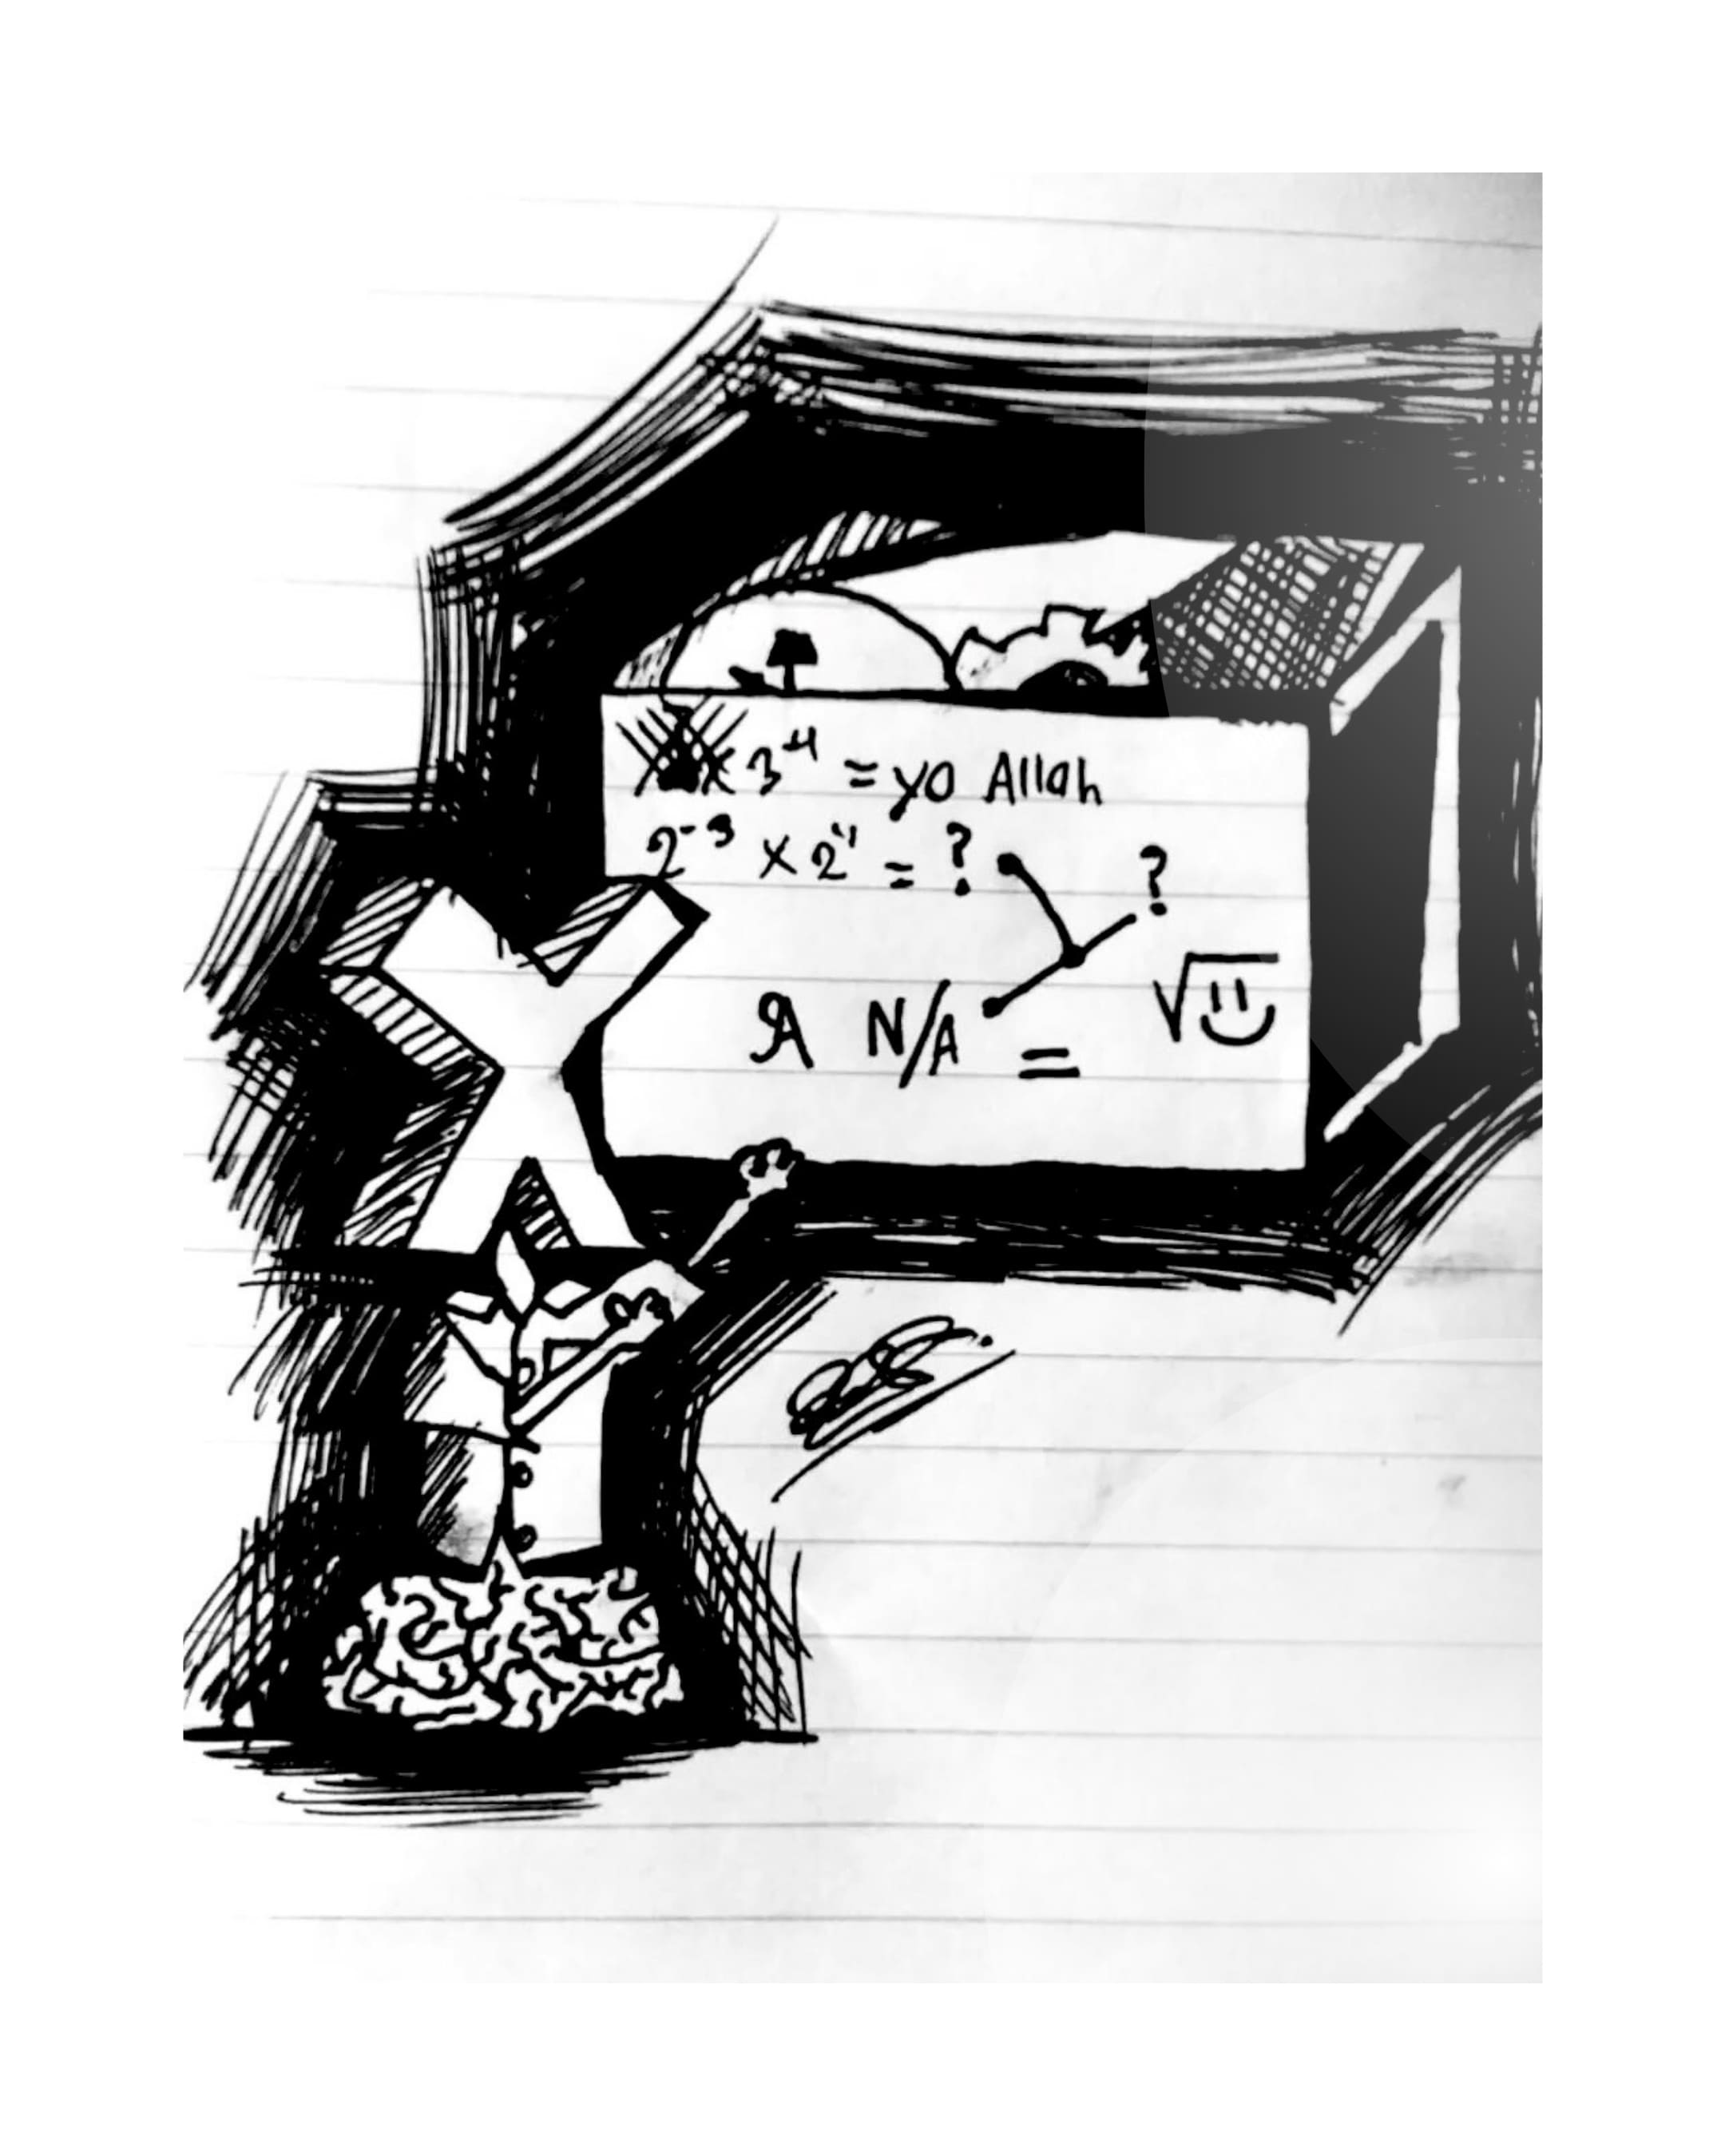 3⁻⁴ = yo Allah
2⁻³ × 2⁴ = ?
?
A N/A = √